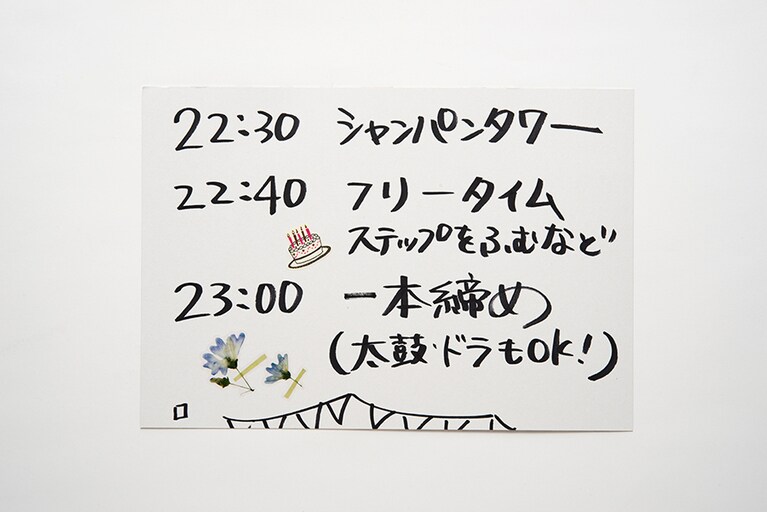 22:30 シャンパンタワー
22:40 フリータイム
ステップをふむなど
23:00 一本締め
(太鼓・ドラもOK!)